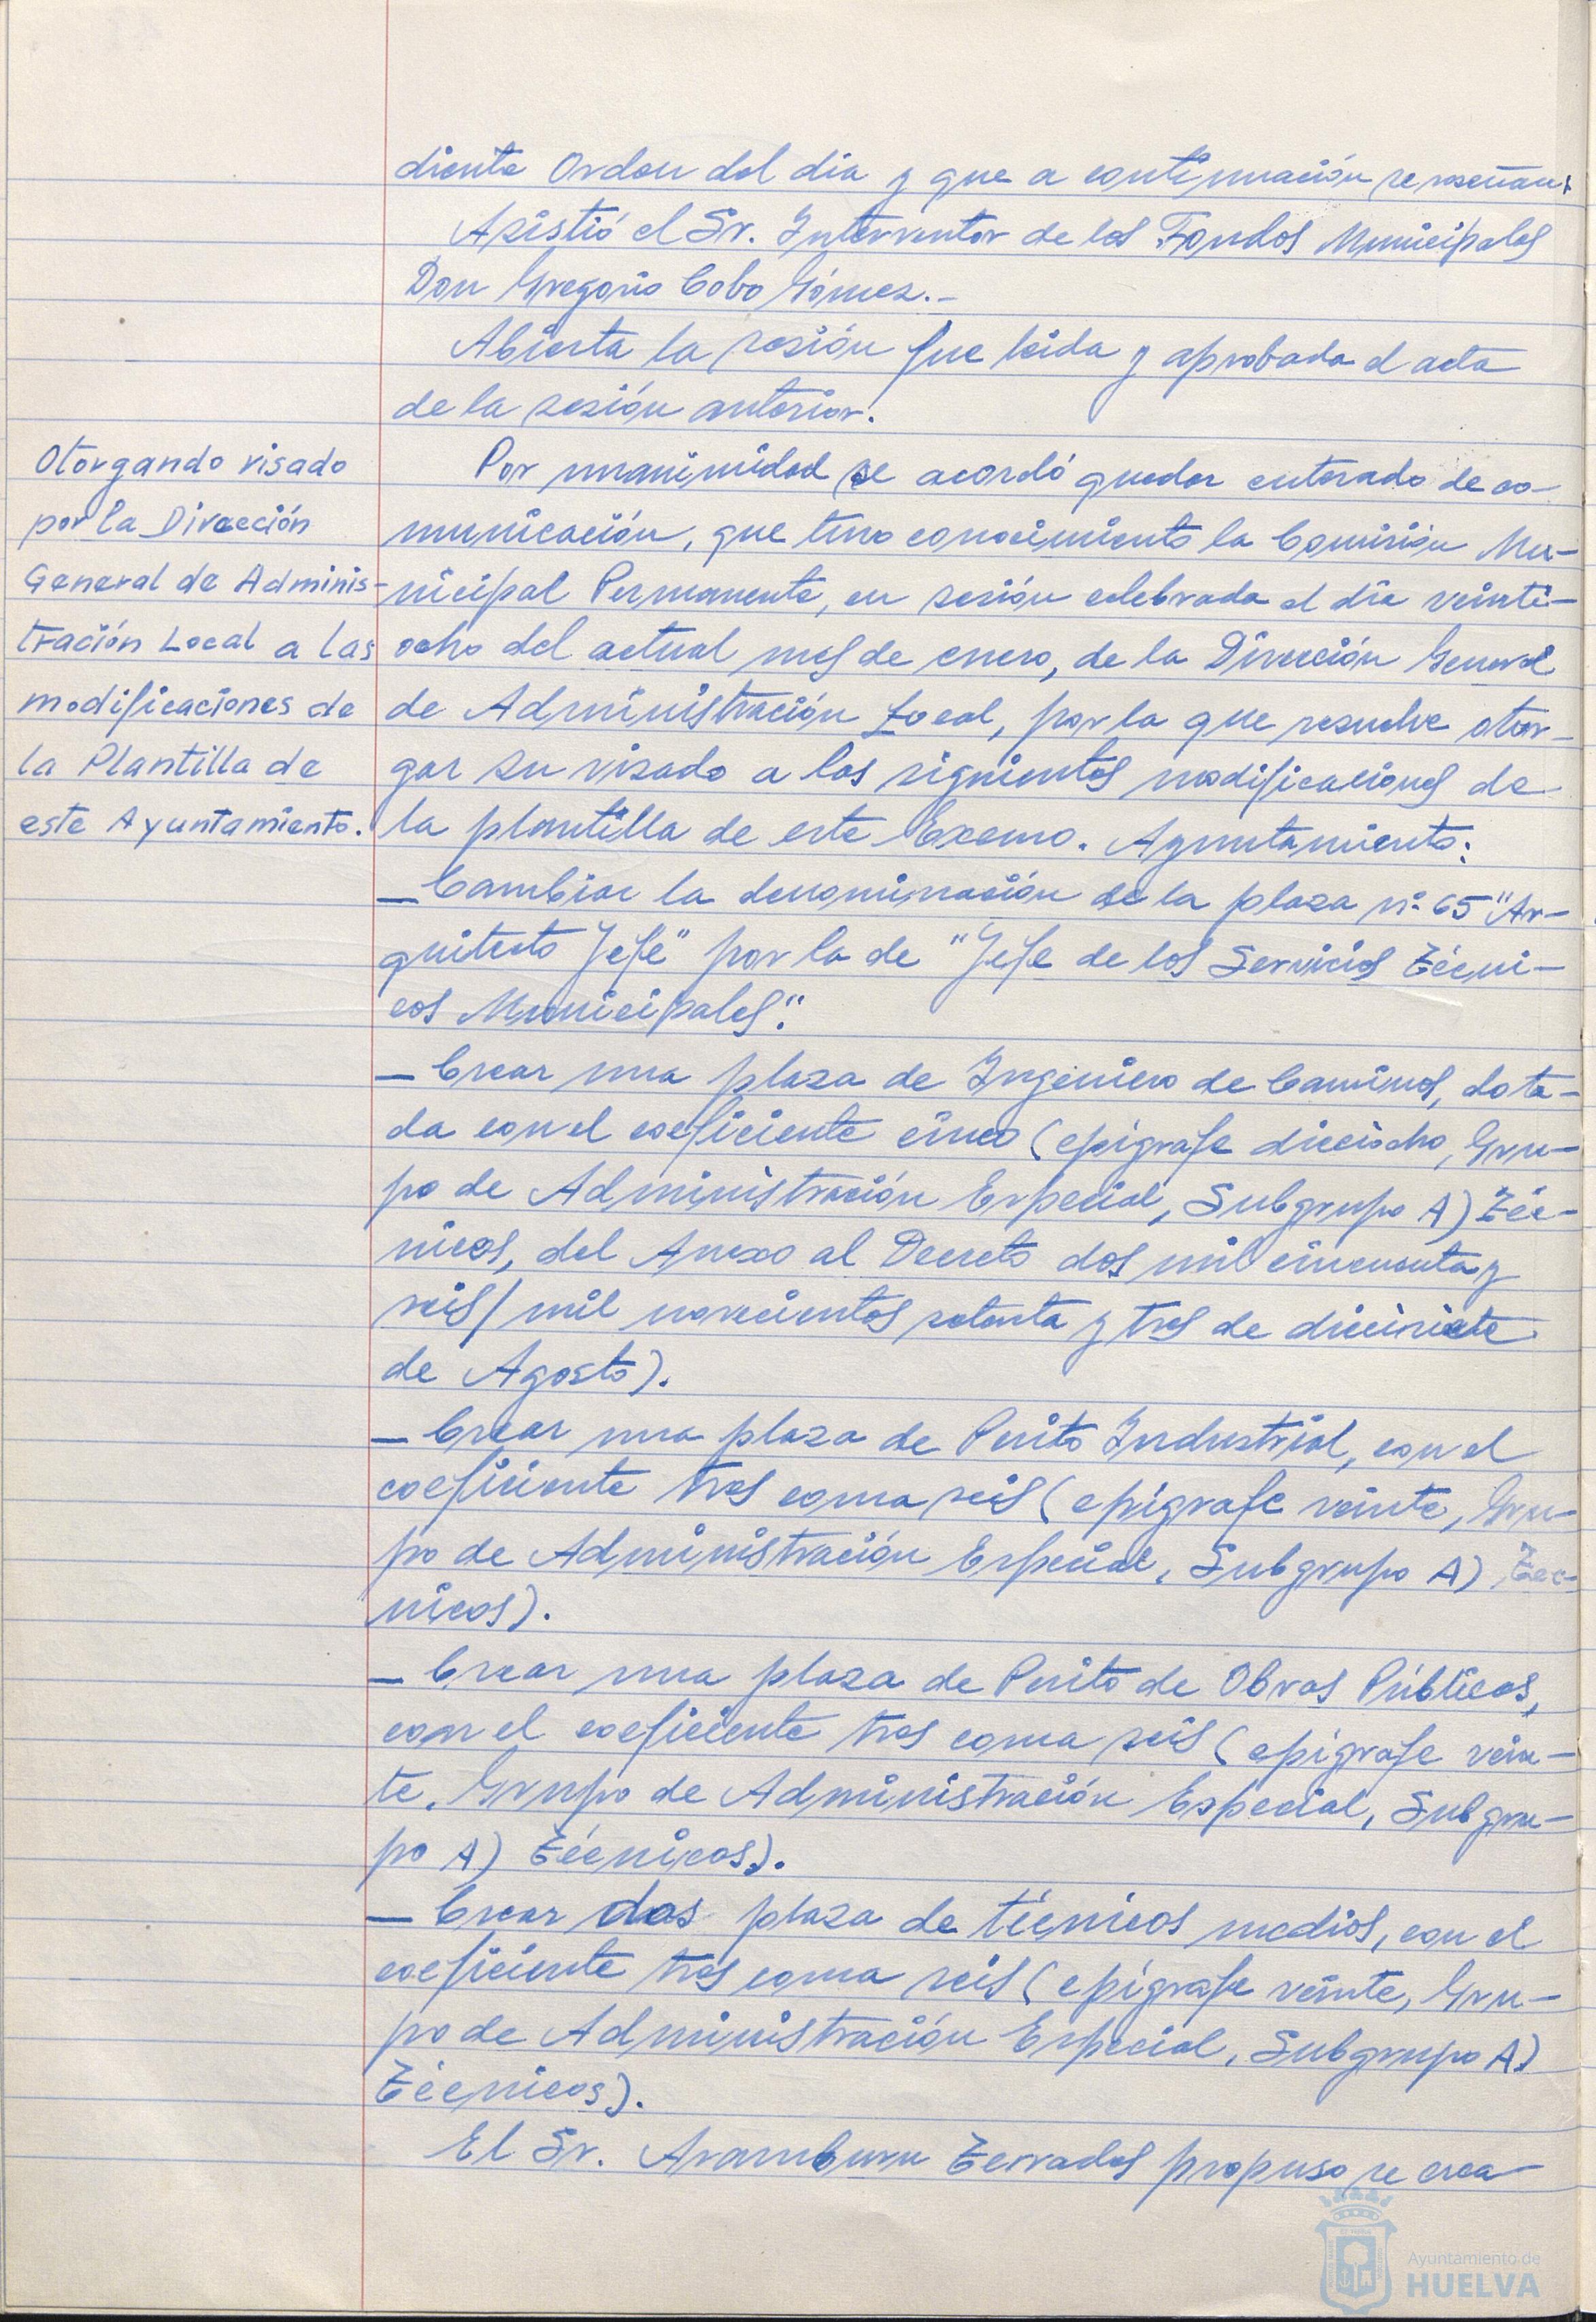 diente Orden del dia y que a continuación se reseñan:
Asistió el Sr. Interventor de los Fondos Municipales
Don Gregorio Cobo Gómez.-
Abierta la sesión fue leida y aprobada el acta
de la sesión anterior.
Otorgando visado
por la Dirección
General de Adminis-
tración Local a las
modificaciones de
la Plantilla de
este Ayuntamiento.
Por unanimidad se acordó quedar enterado de co-
municación, que tuvo conocimiento la Comisión Mu-
nicipal Permanente, en sesión celebrada el día veinti-
ocho del actual mes de enero, de la Dirección General
de Administración Local, por la que resuelve otor-
gar su visado a las siguientes modificaciones de
la plantilla de este Excmo. Ayuntamiento:
- Cambiar la denominación de la plaza nº 65 "Ar-
quitecto Jefe" por la de "Jefe de los Servicios Técni-
cos Municipales".
- Crear una plaza de Ingeniero de Caminos, dota-
da con el coeficiente cinco (epígrafe dieciocho, Gru-
po de Administración Especial, Subgrupo A) Téc-
nicos, del Anexo al Decreto dos mil cincuenta y
seis/mil novecientos setenta y tres de diecisiete
de Agosto).
- Crear una plaza de Perito Industrial, con el
coeficiente tres coma seis (epígrafe veinte, Gru-
po de Administración Especial, Subgrupo A) Téc-
nicos).
- Crear una plaza de Perito de Obras Públicas,
con el coeficiente tres coma seis (epígrafe vein-
te, Grupo de Administración Especial, Subgru-
po A) Técnicos).
- Crear dos plaza de técnicos medios, con el
coeficiente tres coma seis (epígrafe veinte, Gru-
po de Administración Especial, Subgrupo A)
Técnicos).
El Sr. Aramburu Terrades propuso se crea-
Ayuntamiento de
HUELVA